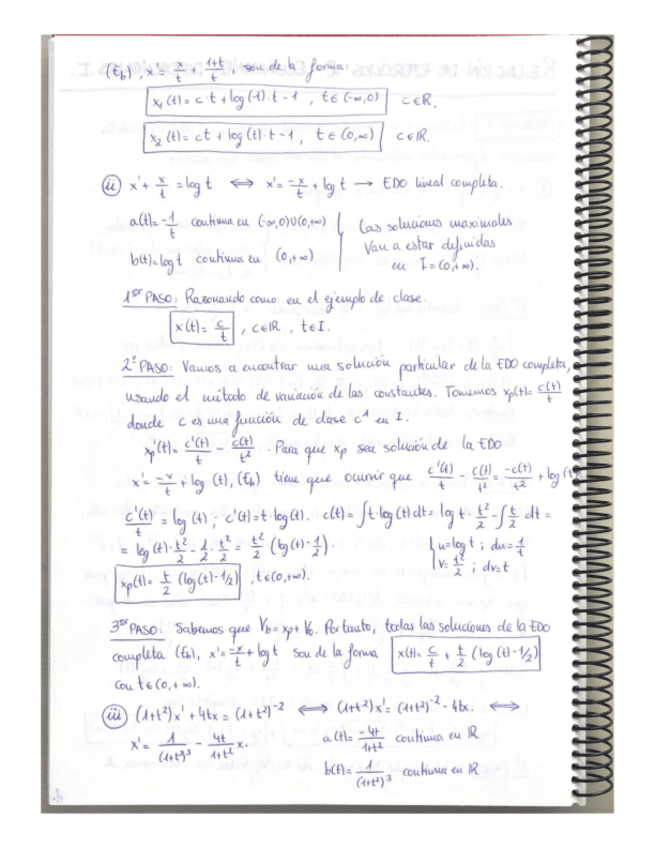 (Eb), x' = x/t + (1+t)/t, son de la forma:
x₁(t) = c·t + log(-t)·t - 1 , t∈(-∞,0) c∈ℝ.
x₂(t) = ct + log(t)·t - 1 , t∈(0,∞) c∈ℝ.
(ii) x' + x/t = log t ⟺ x' = -x/t + log t → EDO lineal completa.
a(t) = -1/t continua en (-∞,0)∪(0,+∞)
b(t) = log t continua en (0,+∞)
Las soluciones maximales
van a estar definidas
en I = (0,+∞).
1er PASO: Razonando como en el ejemplo de clase.
x(t) = c/t , c∈ℝ , t∈I.
2º PASO: Vamos a encontrar una solución particular de la EDO completa,
usando el método de variación de las constantes. Tomemos xp(t) = c(t)/t
donde c es una función de clase c¹ en I.
xp'(t) = c'(t)/t - c(t)/t². Para que xp sea solución de la EDO
x' = -x/t + log(t), (Eb) tiene que ocurrir que c'(t)/t - c(t)/t² = -c(t)/t² + log(t
c'(t)/t = log(t) ; c'(t) = t·log(t). c(t) = ∫t·log(t)dt = log t · t²/2 - ∫ t/2 dt =
= log(t)·t²/2 - 1/2 · t²/2 = t²/2 (log(t) - 1/2).
u = log t ; du = 1/t
v = t²/2 ; dv = t
xp(t) = t/2 (log(t) - 1/2) , t∈(0,+∞).
3er PASO: Sabemos que Vb = xp + V0. Por tanto, todas las soluciones de la EDO
completa (Eb), x' = -x/t + log t son de la forma x(t) = c/t + t/2 (log(t) - 1/2)
con t∈(0,+∞).
(iii) (1+t²)x' + 4tx = (1+t²)⁻² ⟺ (1+t²)x' = (1+t²)⁻² - 4tx. ⟺
x' = 1/(1+t²)³ - 4t/(1+t²) x.
a(t) = -4t/(1+t²) continua en ℝ
b(t) = 1/(1+t²)³ continua en ℝ